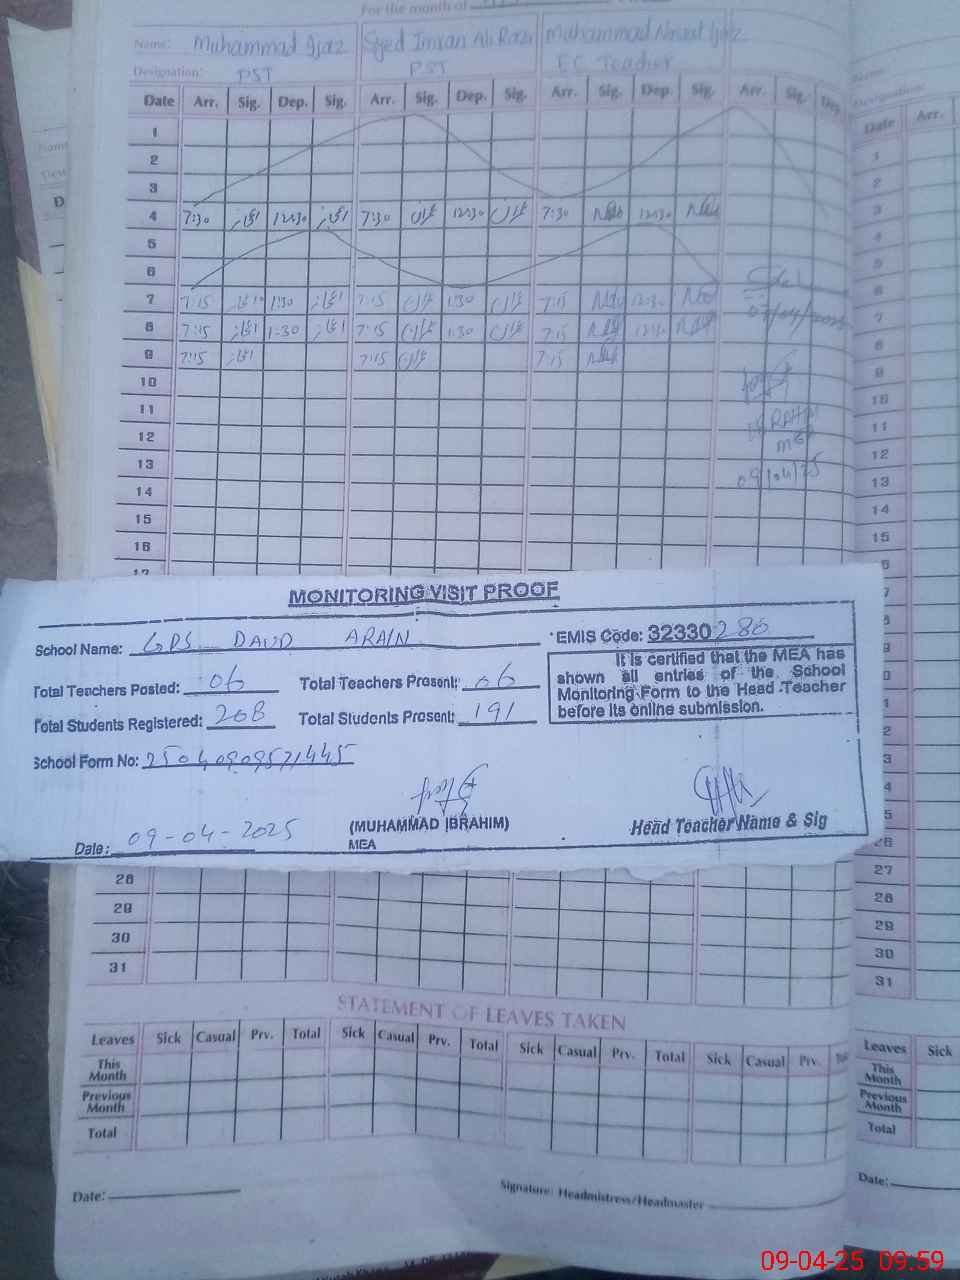 For the month of
Name: Muhammad Ijaz Syed Imran Ali Raza Muhammad Nawat Ijaz
Designation: PST PST EC Teacher
Date Arr. Sig. Dep. Sig. Arr. Sig. Dep. Sig. Arr. Sig. Dep. Sig. Arr. Sig. Dep
1
2
3
4 7:30 اعجاز 12:30 اعجاز 7:30 عمران 12:30 عمران 7:30 12:30
5
6
7 7:15 اعجاز 1:30 اعجاز 7:15 عمران 1:30 عمران 7:15 12:30
8 7:15 اعجاز 1:30 اعجاز 7:15 عمران 1:30 عمران 7:15 12:30
9 7:15 اعجاز 7:15 عمران 7:15
10
11
12 MEA
13 09/04/25
14
15
16
17
MONITORING VISIT PROOF
School Name: GPS DAUD ARAIN EMIS Code: 32330280
Total Teachers Posted: 06 Total Teachers Present: 06
Total Students Registered: 208 Total Students Present: 191
It is certified that the MEA has shown all entries of the School Monitoring Form to the Head Teacher before its online submission.
School Form No: 25040909571445
Date: 09-04-2025 (MUHAMMAD IBRAHIM) Head Teacher Name & Sig
MEA
28
29
30
31
STATEMENT OF LEAVES TAKEN
Leaves Sick Casual Prv. Total Sick Casual Prv. Total Sick Casual Prv. Total Sick Casual Prv.
This Month
Previous Month
Total
Date: Signature: Headmistress/Headmaster
Name:
Designation:
Date Arr.
1
2
3
4
5
6
7
8
9
10
11
12
13
14
15
26
27
28
29
30
31
Leaves Sick
This Month
Previous Month
Total
Date:
09-04-25 09:59